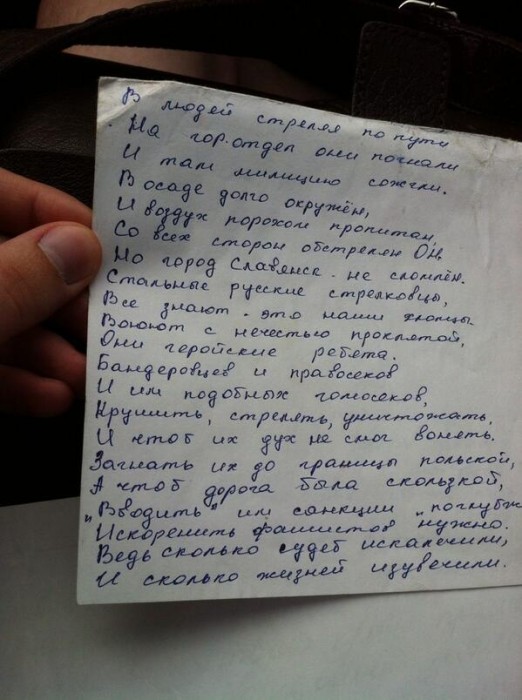 В людей стреляя по пути
На гор.отдел они погнали
И там милицию сожгли.
В осаде долго окружён,
И воздух порохом пропитан,
Со всех сторон обстрелян Он.
Но город Славянск - не сломлен.
Стальные русские стрелковцы,
Все знают - это наши хлопцы.
Воюют с нечестью проклятой,
Они геройские ребята.
Бандеровцев и правосеков
И им подобных голосеков,
Крушить, стрелять, уничтожать,
И чтоб их дух не смог вонять.
Загнать их до границы польской,
А чтоб дорога была скользкой,
„Вводить" им санкции „поглубж
Искоренить фашистов нужно.
Ведь сколько судеб искалечили,
И сколько жизней изувечили.